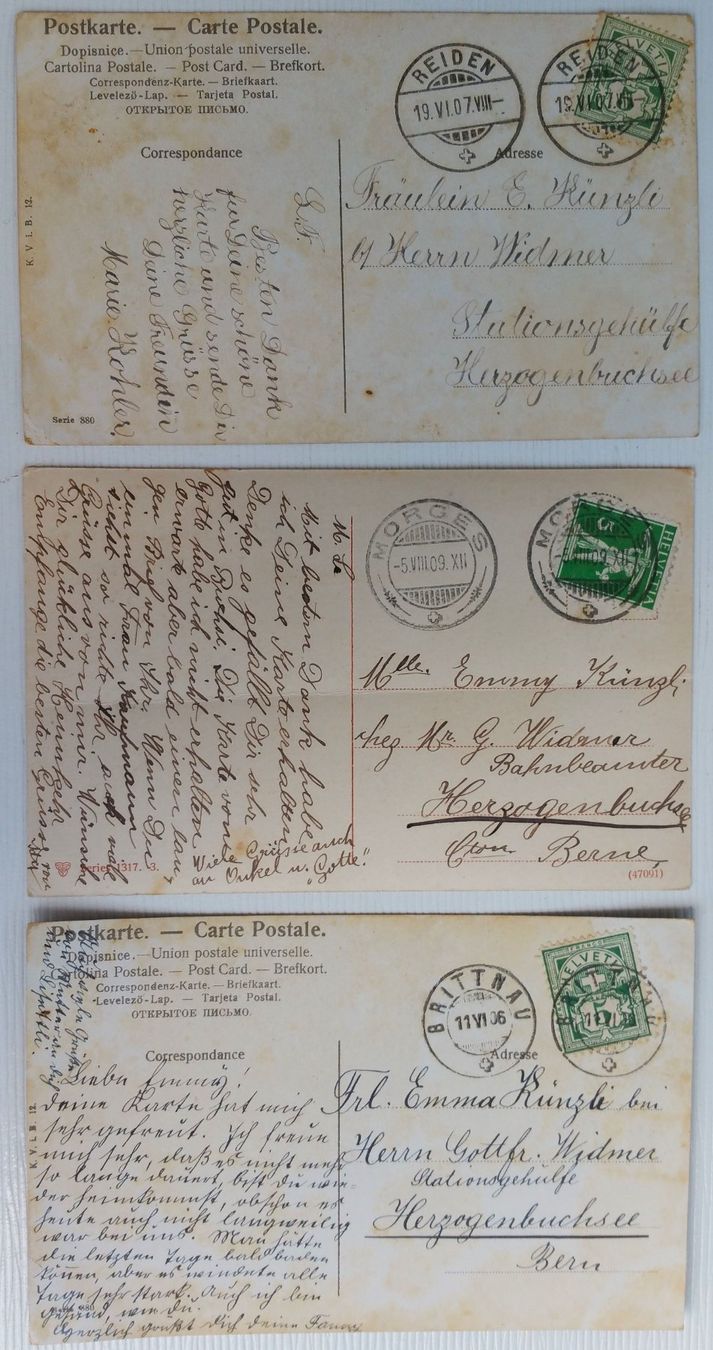 Postkarte. — Carte Postale.
Dopisnice. — Union postale universelle.
Cartolina Postale. — Post Card. — Brefkort.
Correspondenz-Karte. — Briefkaart.
Levelező-Lap. — Tarjeta Postal.
ОТКРЫТОЕ ПИСЬМО.
HELVETIA
REIDEN
19.VI.07.VIII—
REIDEN
19.VI.07.VIII
Correspondance
Adresse
L. F.
Besten Dank
für Deine schöne
Karte und sende Dir
herzliche Grüsse
Deine Freundin
Marie Kohler.
Fräulein E. Künzli
b/ Herrn Widmer
Stationsgehülfe
Herzogenbuchsee
K. V. i. B. 12.
Serie 880
HELVETIA
5
MORGES
-5.VIII.09.XII
MORGES
VIII.09.XII
M. L.
Mit besten Dank habe
ich Deine Karte erhalten
Denke es gefällt Dir sehr
gut in Buchsi. Die Karte von
Gotte habe ich nicht erhalten
erwarte aber bald einen lan-
gen Brief von Ihr. Wenn Du
einmal Frau Kaufmann
siehst so richte Ihr auch viele
Grüsse aus von mir. Wünsche
Dir glückliche Heimkehr
Empfange die besten Grüsse von
Viele Grüsse auch
an Onkel u. "Gotte."
Mlle. Emmy Künzli
chez Mr. G. Widmer
Bahnbeamter
Herzogenbuchsee
Cton Berne,
Serie 1317. 3.
(47091)
Postkarte. — Carte Postale.
Dopisnice. — Union postale universelle.
Cartolina Postale. — Post Card. — Brefkort.
Correspondenz-Karte. — Briefkaart.
Levelező-Lap. — Tarjeta Postal.
ОТКРЫТОЕ ПИСЬМО.
FRANCO
HELVETIA
BRITTNAU
11 VI 06
BRITTNAU
Correspondance
Adresse
Liebe Emmy!
Deine Karte hat mich
sehr gefreut. Ich freue
mich sehr, daß es nicht mehr
so lange dauert, bist du wie-
der heimkommst, obschon es
heute auch nicht langweilig
war bei uns. Man hätte
die letzten Tage bald baden
können, aber es windete alle
Tage sehr stark. Auch ich bin
gesund, wie du.
Herzlich grüßt dich deine Fanny
Frl. Emma Künzli bei
Herrn Gottfr. Widmer
Stationsgehülfe
Herzogenbuchsee
Bern
K. V. i. B. 12.
880